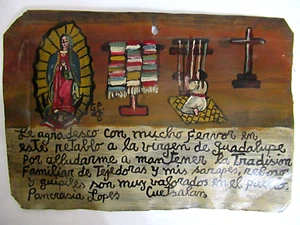 Le agradesco con mucho fervor en
este retablo a la virgen de Guadalupe
por alludarme a mantener la Tradision
Familiar de Tejedoras y mis sarapes, reboso
y guipiles son muy valorados en el pueblo.
Pancrasia Lopes Cuetsalan